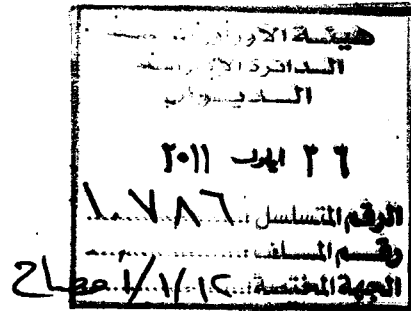 هيئة الاوراق
الدائرة الادارية
الديوان
٢٦ ايلول ٢٠١١
الرقم المتسلسل : ١٠٧٨٦
رقم الملف :
الجهة المختصة : ١/١/١٢